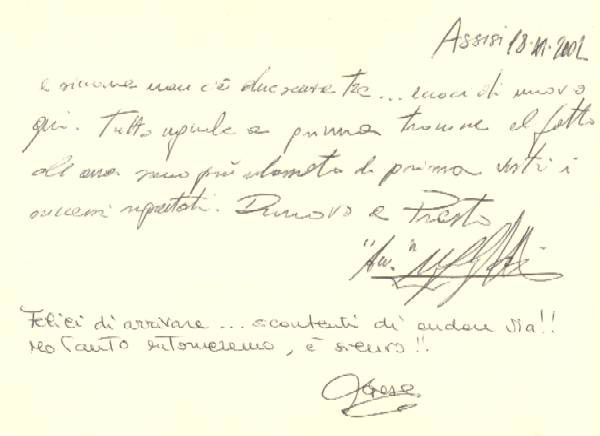 Assisi 18.XI.2002
e siccome non c'è due senza tre... eccoci di nuovo
qui. Tutto uguale a prima tranne il fatto
che ora sono più di prima visti i
successi riportati. Di nuovo e Presto
"Avv."
Felici di arrivare... scontenti di andare via!!
ma tanto ritorneremo, è sicuro!!